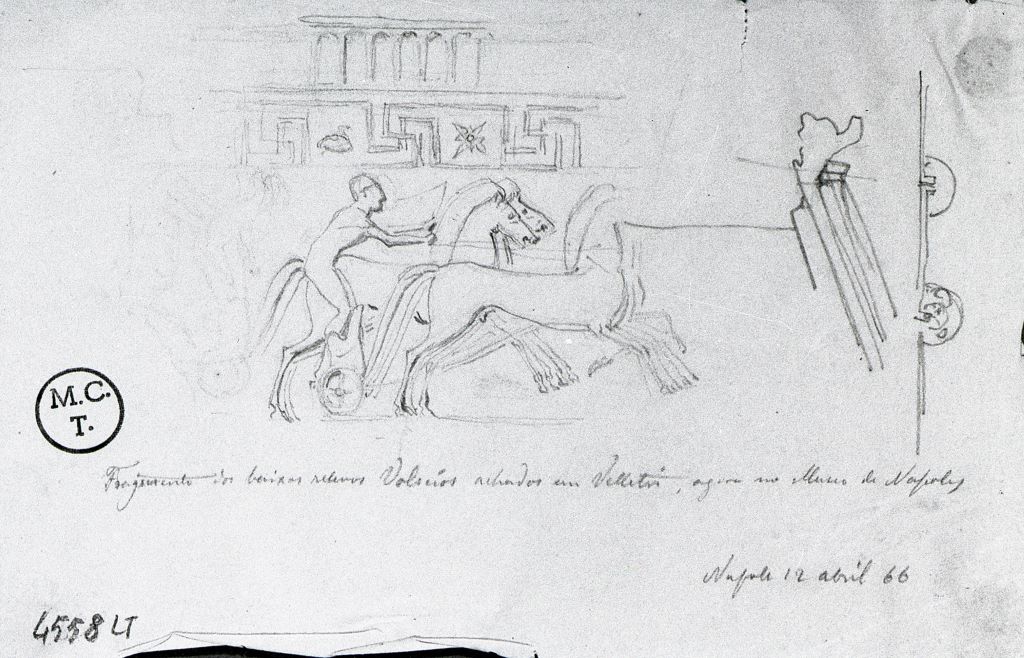 M.C.
T.
Fragmento dos baixos relevos Volscios achados em Velletri, agora no Museu de Napoles
Napoli 12 abril 66
4558 LT